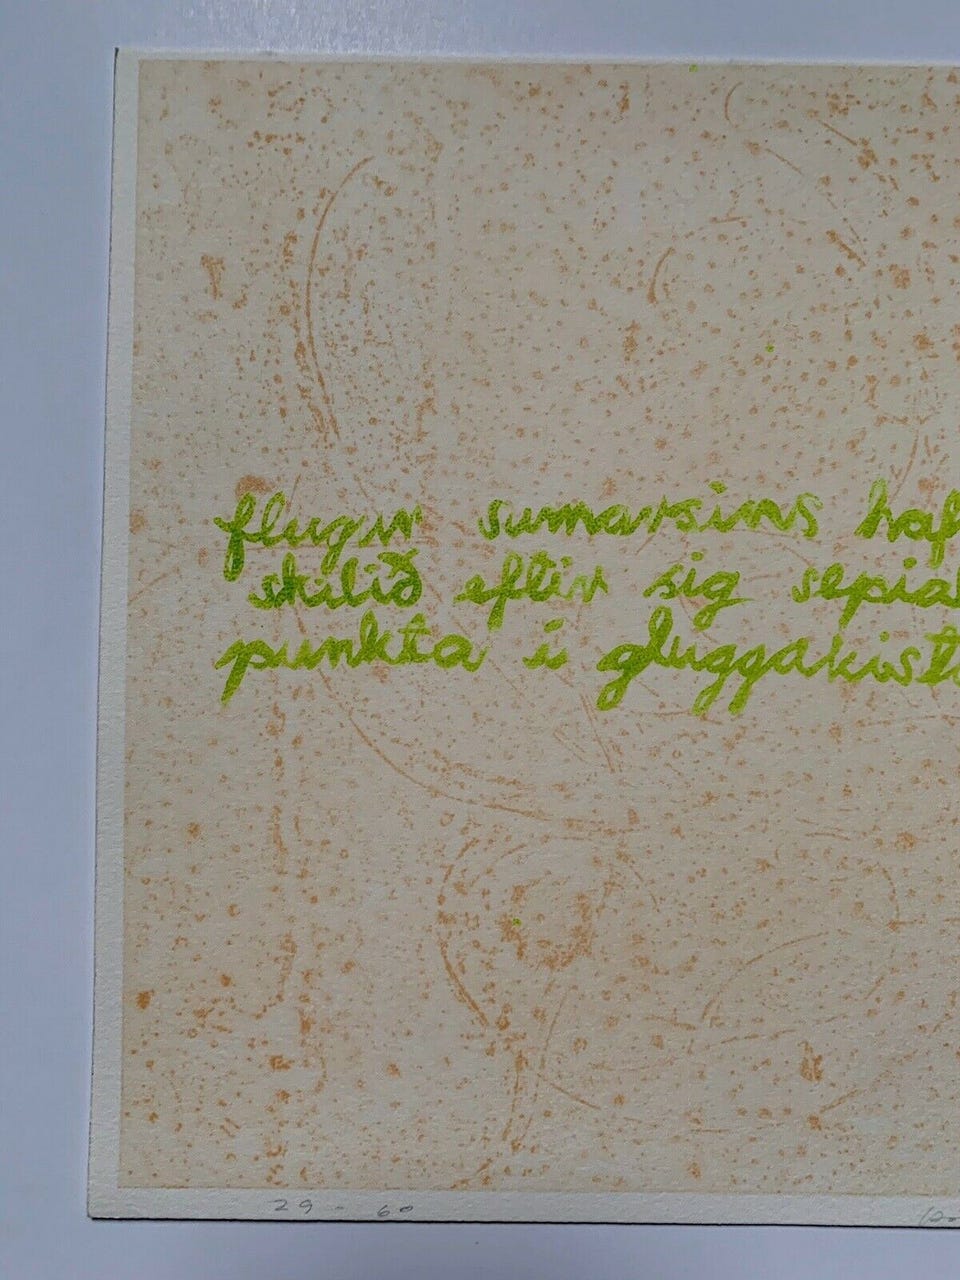 flugur sumarsins haf
skilið eftir sig sepia
punkta í gluggakist
29 - 60